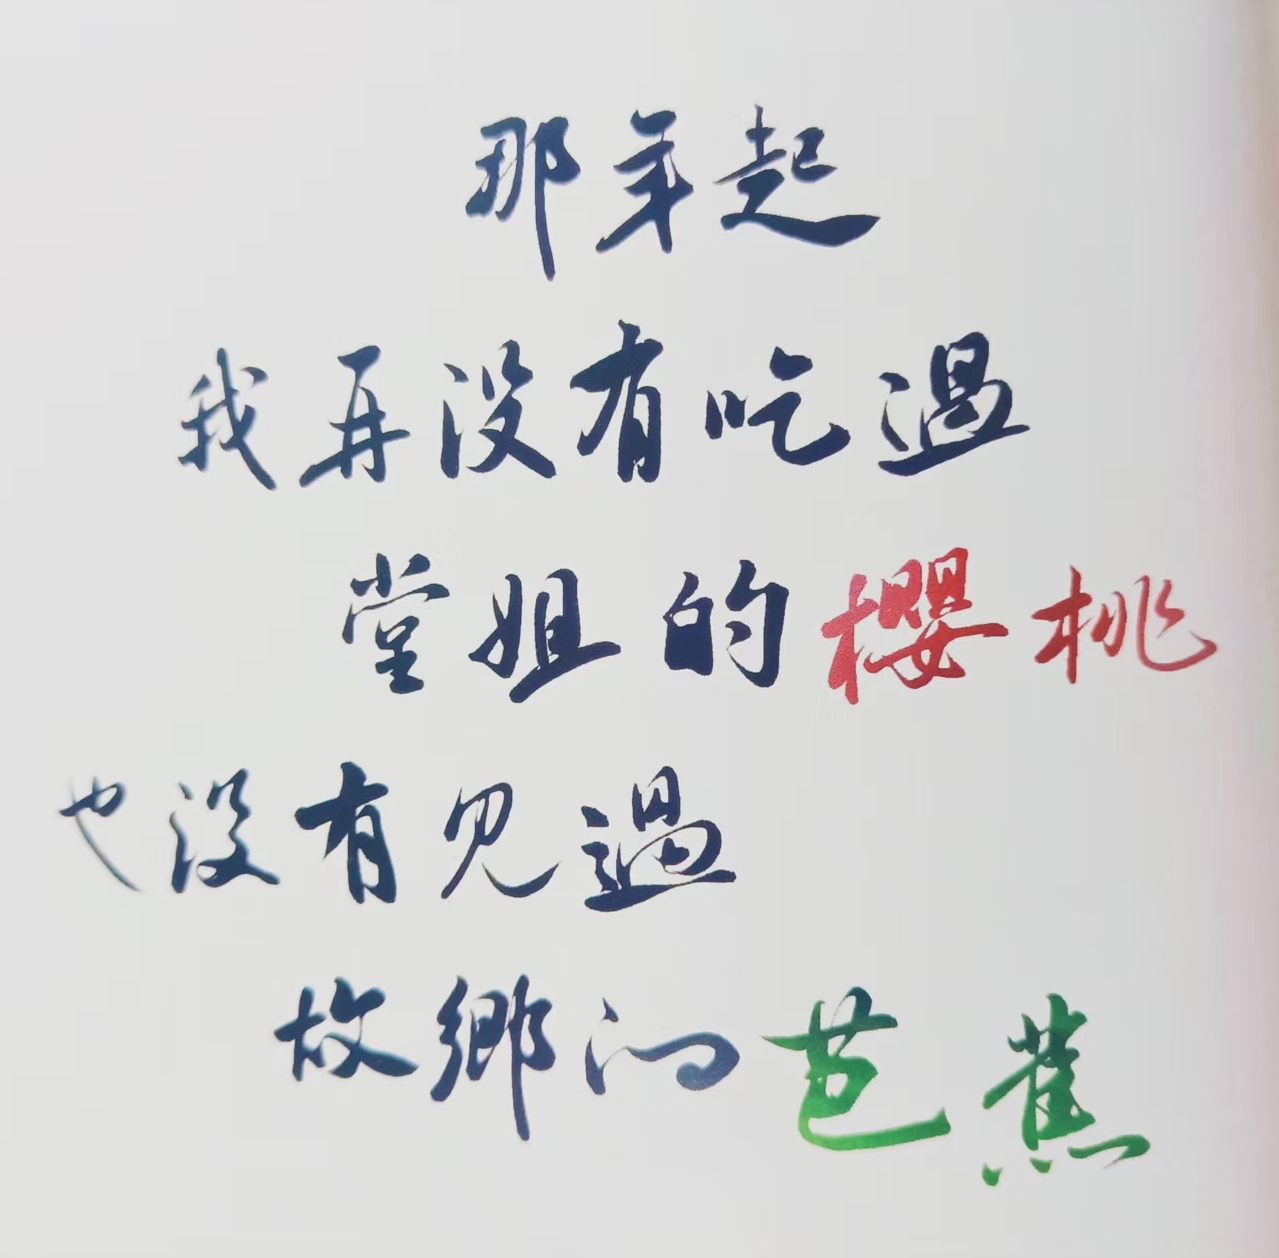 那年起
我再没有吃過
堂姐的櫻桃
也没有见過
故鄉的芭蕉